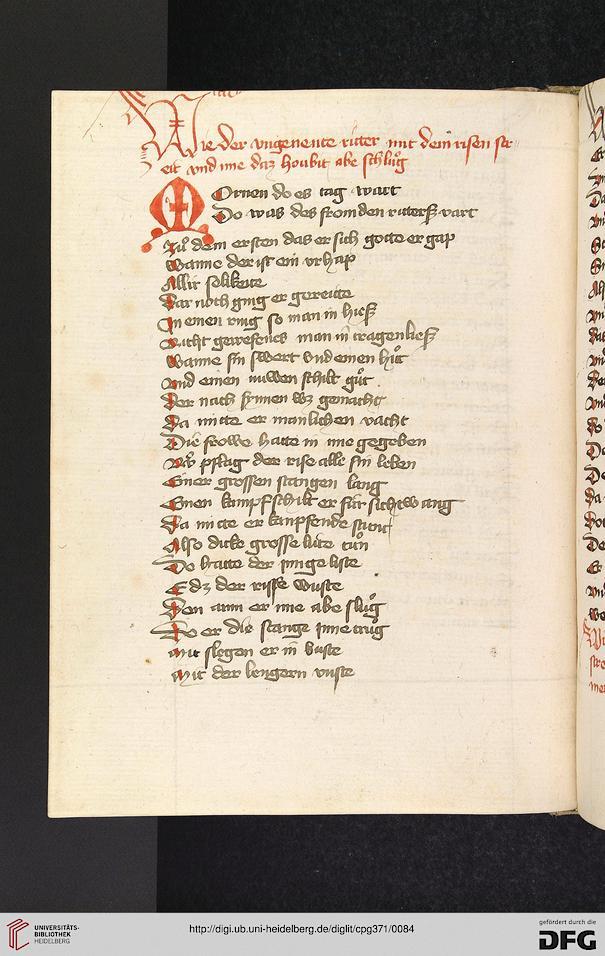 Wie der vngenente ritter mit dem risen str
eit vnd ime daz houbit abe schlůg
MOrnen do es tag wart
Do was des fromden ritterß vart
Zů dem ersten das er sich gotte ergap
Wanne der ist ein vrhap
Allir selikeite
Dar noch ging er gereitte
In einen ring so man in hieß
nicht gewefens man in tragen ließ
Wanne sin swert vnd einen hůt
vnd einen nuwen schilt gůt
Der nach sinnen wz gemacht
Da mitte er manlichen vacht
Die frowe hatte in ime gegeben
Nů pflag der rise alle sin leben
Einer grossen stangen lang
Einen kampfschilt er für sich twang
Da mitte er kempfende stunt
Also dicke grosse lute tůn
Do hatte der junge liste
E dz der risse wuste
Den arm er ime abe slůg
Do er die stange jnne trůg
mit slegen er in buste
mit der lengern vuste
UNIVERSITÄTS-
BIBLIOTHEK
HEIDELBERG
http://digi.ub.uni-heidelberg.de/diglit/cpg371/0084
gefördert durch die
DFG